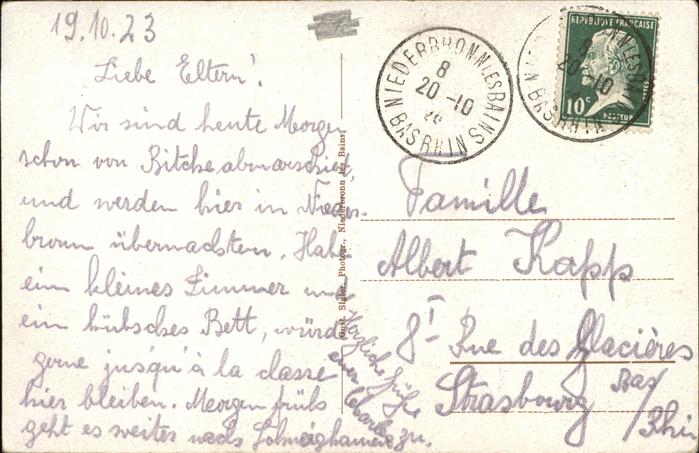 19.10.23
Liebe Eltern!
Wir sind heute Morgen
schon von Bitche abmarschiert,
und werden hier in Nieder-
bronn übernachten. Habe
ein kleines Zimmer und
ein hübsches Bett, würde
gerne jusqu'à la classe
hier bleiben. Morgen früh
geht es weiter nach zu.
Herzliche Grüße
euer Charles
Photogr., Niederbronn les Bains
NIEDERBRONN LES BAINS
8
20 -10
BAS RHIN
8
20 -10
BAS RHIN
REPUBLIQUE FRANÇAISE
10c
PASTEUR
Famille
Albert Kapp
8 I Rue des Glacières
Strasbourg Bas/
Rhin